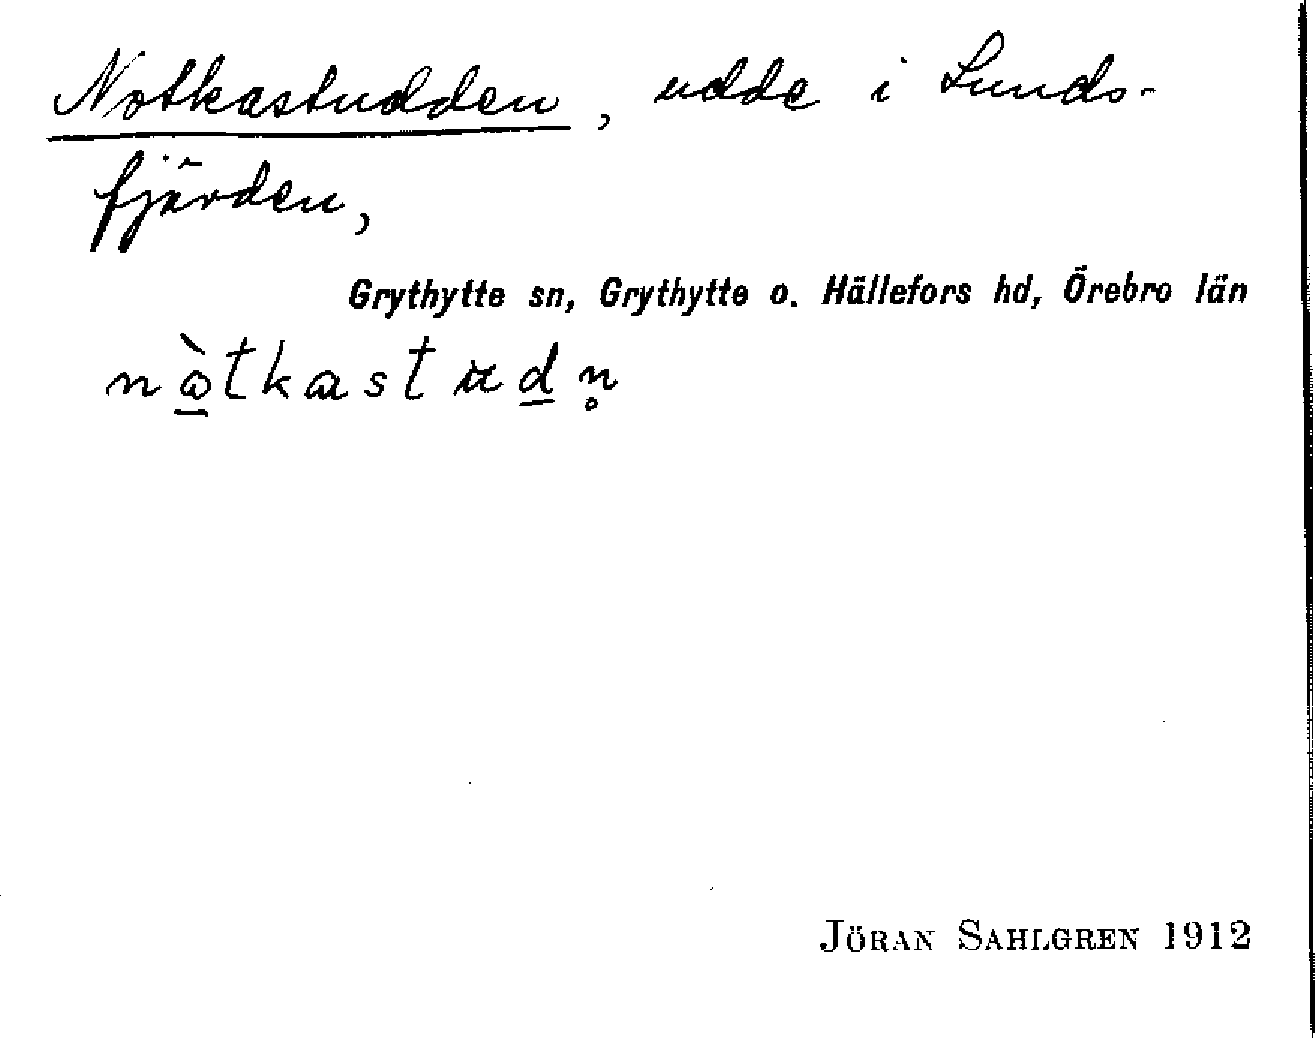 Notkastudden, udde i Lunds-
fjärden,
Grythytte sn, Grythytte o. Hällefors hd, Örebro län
nòtkastudn̥
JÖRAN SAHLGREN 1912